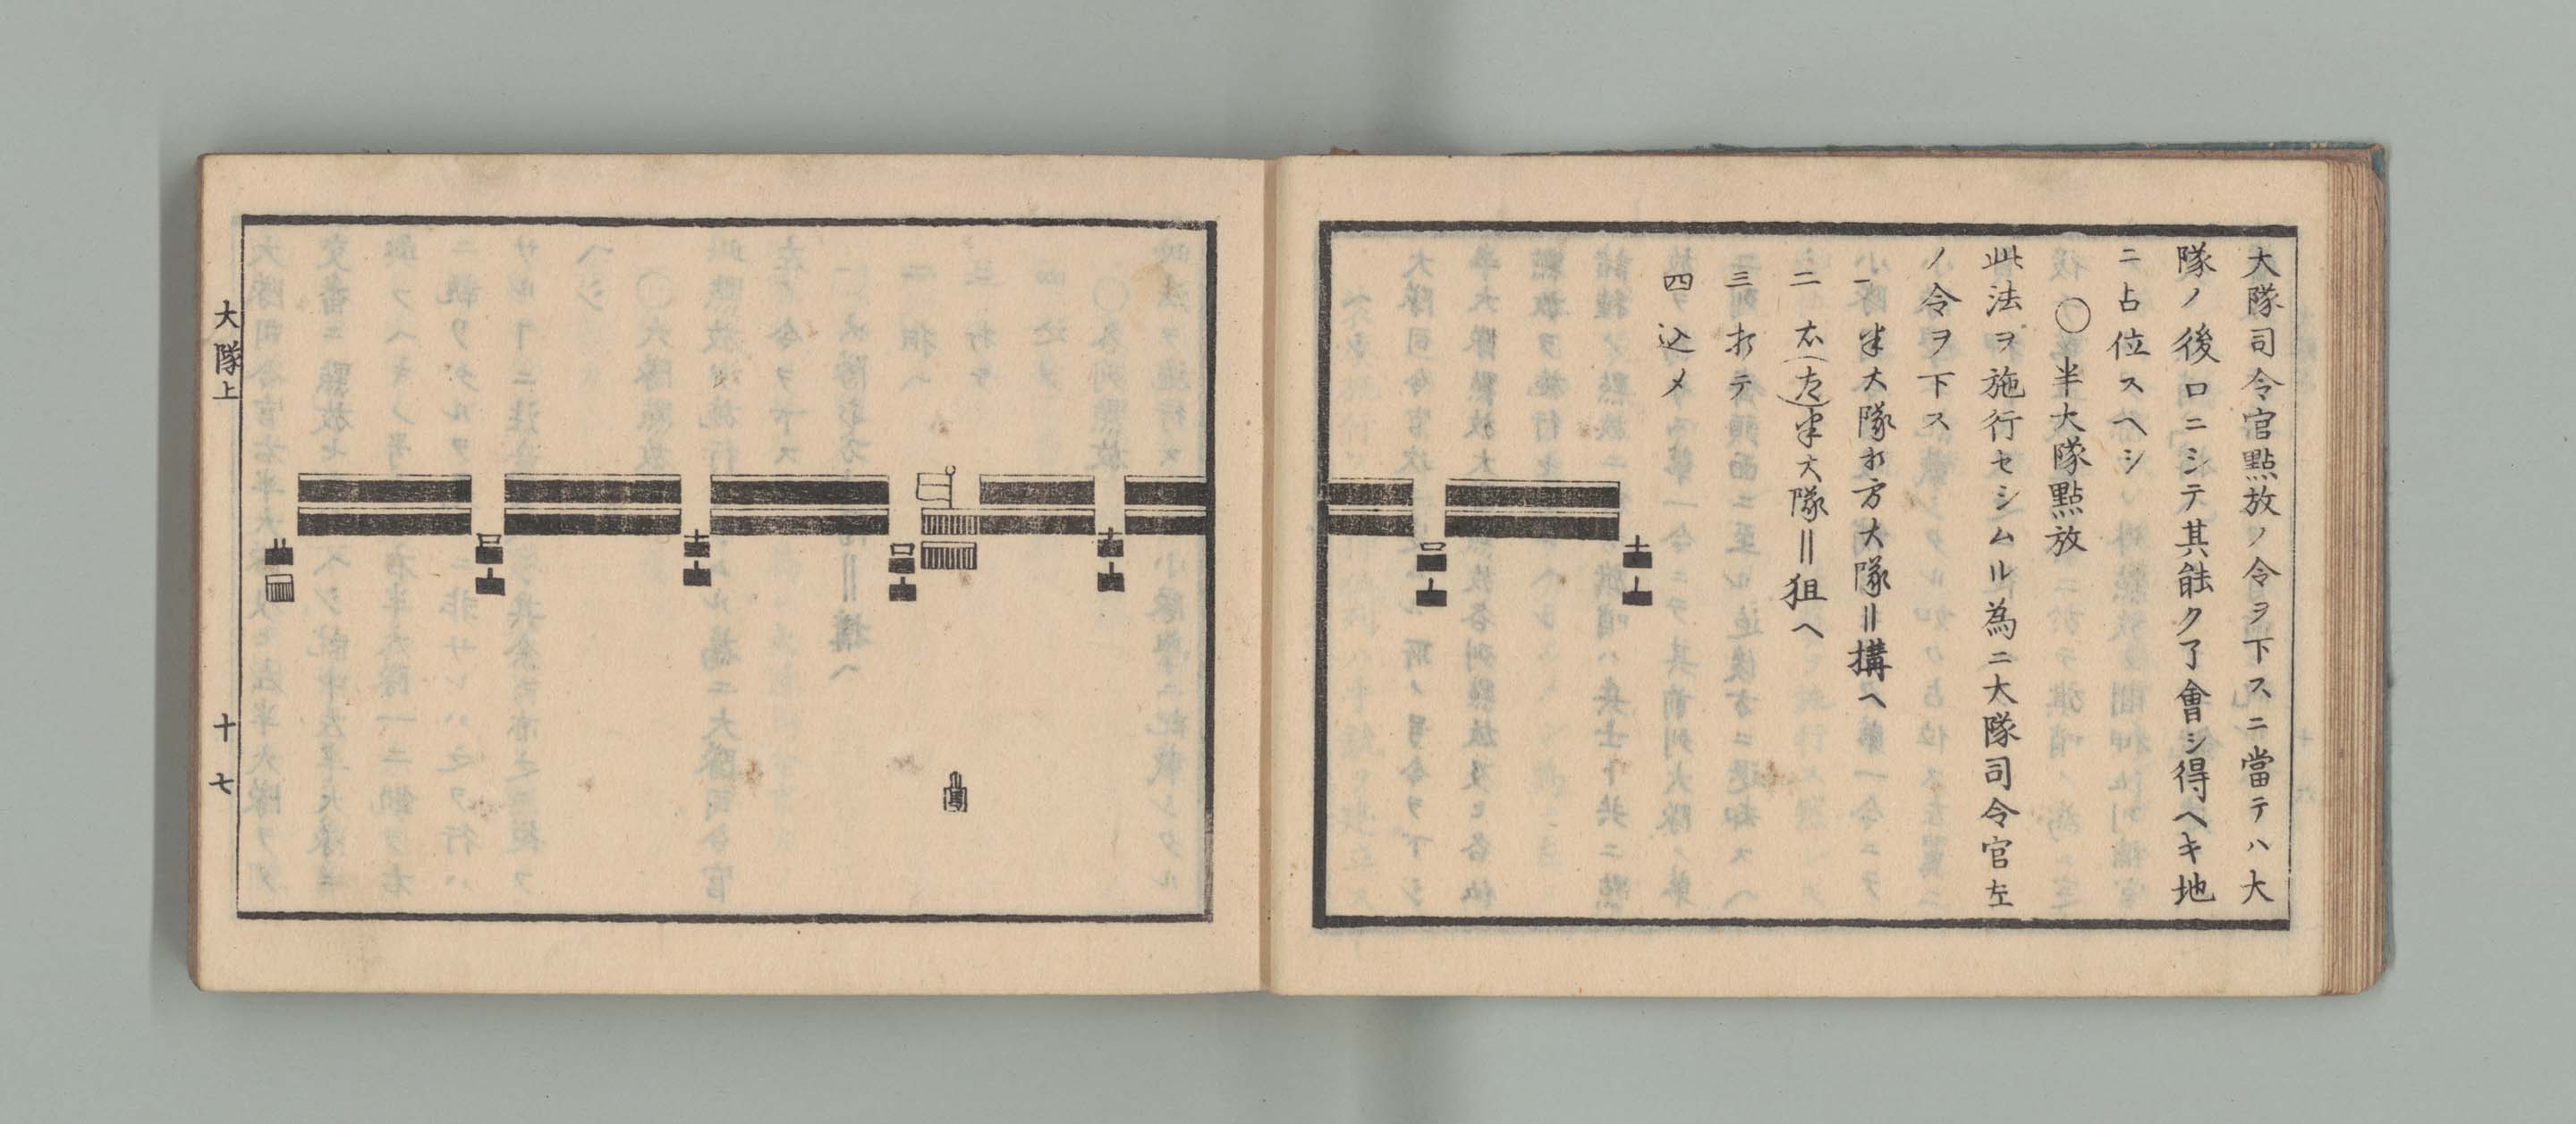 大隊司令官點放ノ令ヲ下スニ當テハ大
隊ノ後ロニシテ其能ク了會シ得ヘキ地
ニ占位スヘシ
〇半大隊點放
此法ヲ施行セシムル為ニ大隊司令官左
ノ令ヲ下ス
一 半大隊打方大隊〢構ヘ
二 右(左)半大隊〢狙ヘ
三 打テ
四 込メ
大隊上
十七